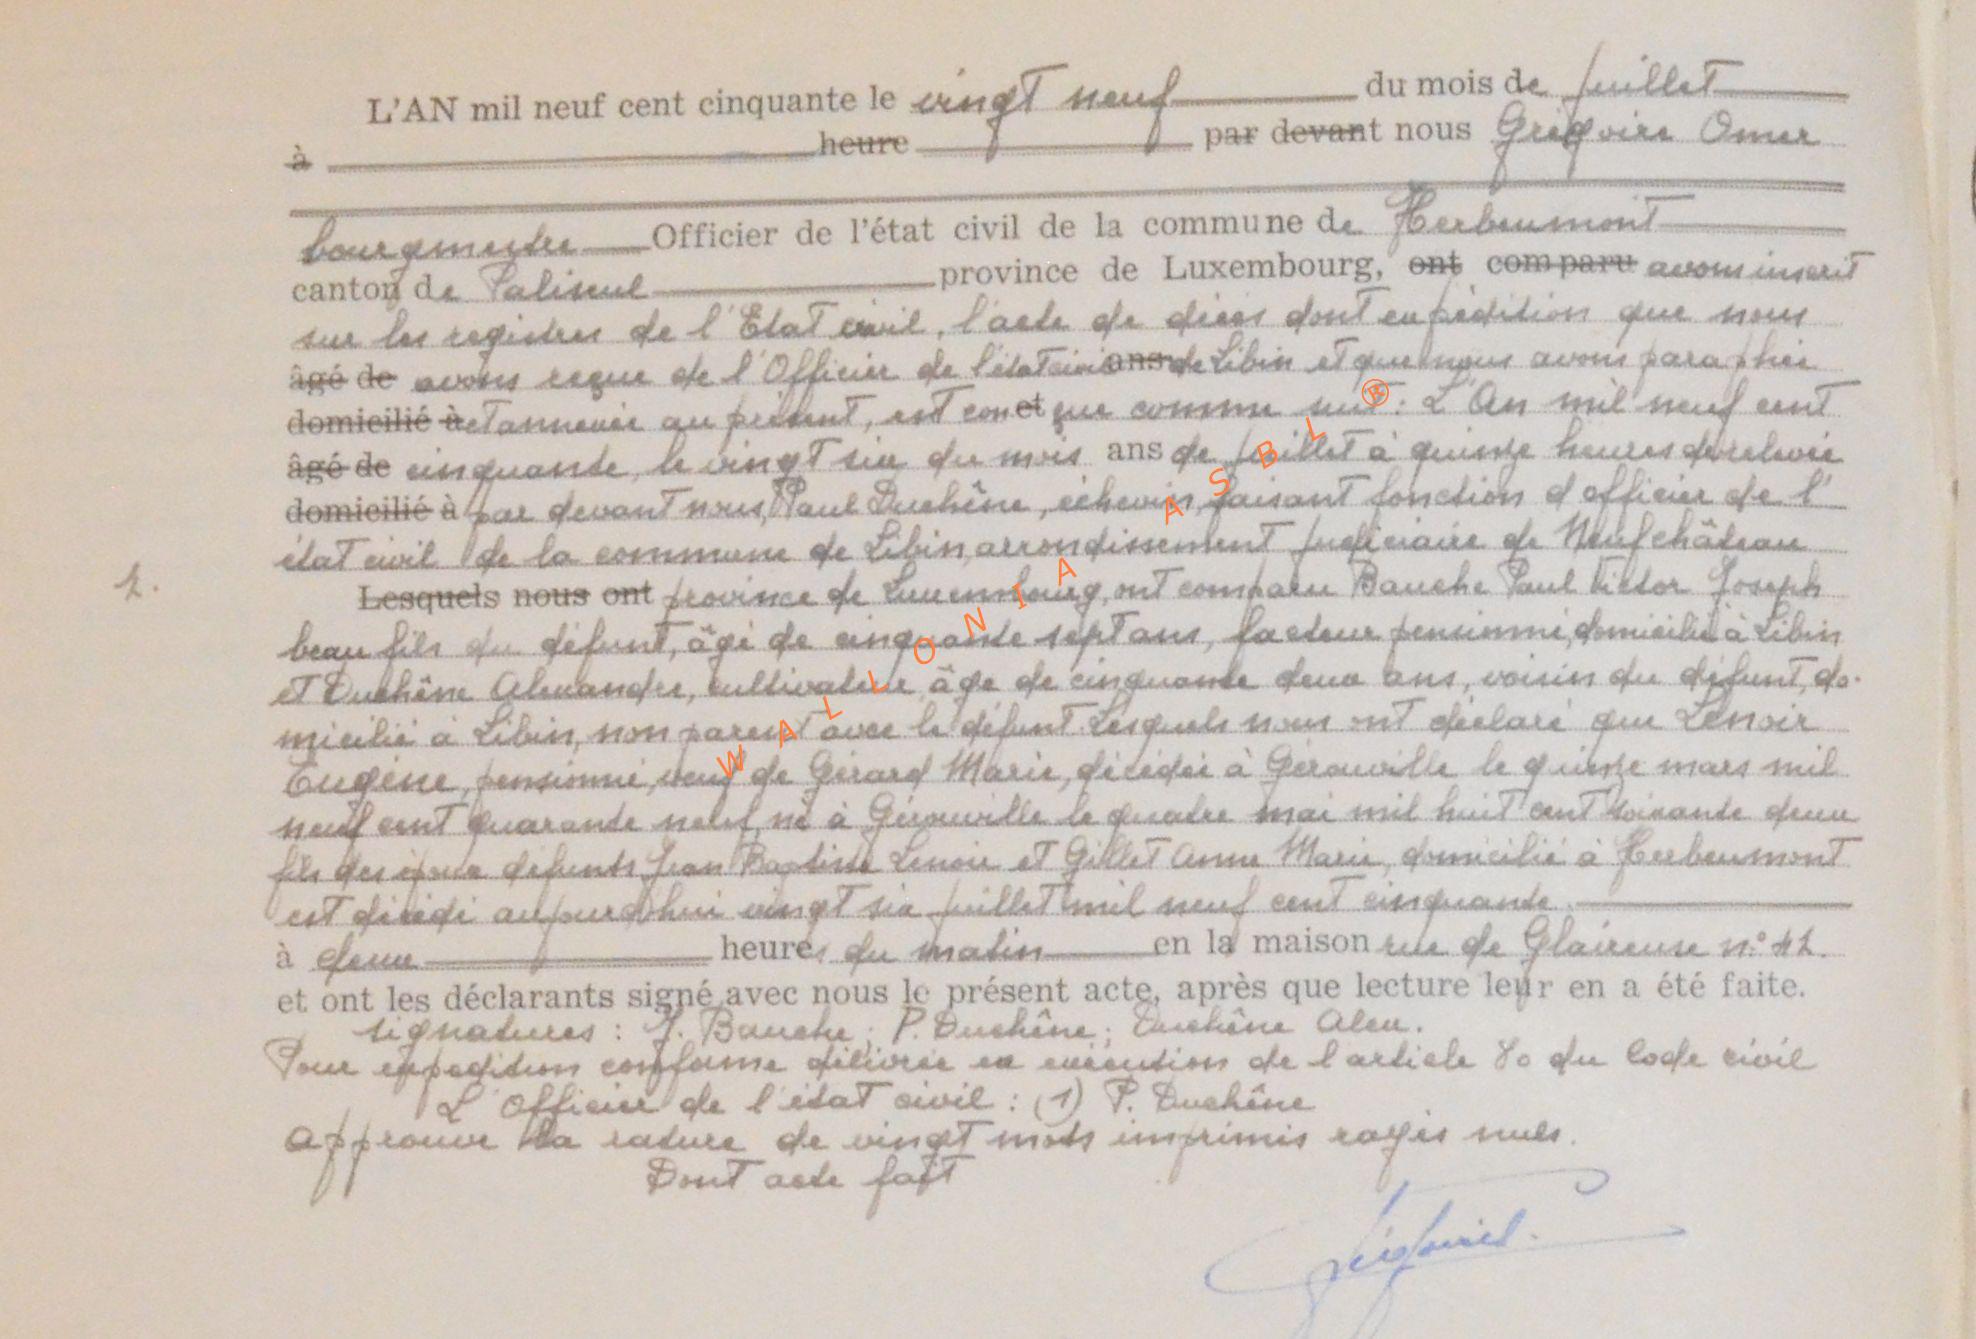 L'AN mil neuf cent cinquante le vingt neuf du mois de juillet
à heure par devant nous Grégoire Omer
bourgmestre Officier de l'état civil de la commune de Herbeumont
canton de Paliseul province de Luxembourg, ont comparu avons inscrit
sur les registres de l'Etat civil, l'acte de décès dont expédition que nous
âgé de avons reçue de l'Officier de l'état civil ans de Libin et que nous avons paraphée
domicilié à et annexée au présent, est conçue et comme suit : L'An mil neuf cent
âgé de cinquante, le vingt six du mois ans de juillet à quinze heures de relevée
domicilié à par devant nous, Paul Duchêne, échevin, faisant fonction d'officier de l'
état civil de la commune de Libin, arrondissement judiciaire de Neufchâteau
2.
Lesquels nous ont province de Luxembourg, ont comparu Bauche Paul Victor Joseph
beau fils du défunt, âgé de cinquante sept ans, facteur pensionné, domicilié à Libin
et Duchêne Alexandre, cultivateur, âgé de cinquante deux ans, voisin du défunt, do-
micilié à Libin, non parent avec le défunt. Lesquels nous ont déclaré que Lenoir
Eugène, pensionné, veuf de Gérard Marie, décédée à Gérouville le quinze mars mil
neuf cent quarante neuf, né à Gérouville le quatre mai mil huit cent soixante deux
fils des époux défunts Jean Baptiste Lenoir et Gillet Anne Marie, domicilié à Herbeumont
est décédé aujourd'hui vingt six juillet mil neuf cent cinquante.
à deux heures du matin en la maison rue de Glaireuse n° 42.
et ont les déclarants signé avec nous le présent acte, après que lecture leur en a été faite.
signatures : J. Bauche ; P. Duchêne ; Duchêne Alex.
Pour expédition conforme délivrée en exécution de l'article 80 du Code civil
L'Officier de l'état civil : (1) P. Duchêne
Approuvé la rature de vingt mots imprimés rayés nuls.
Dont acte fait
WALLONIA ASBL ®